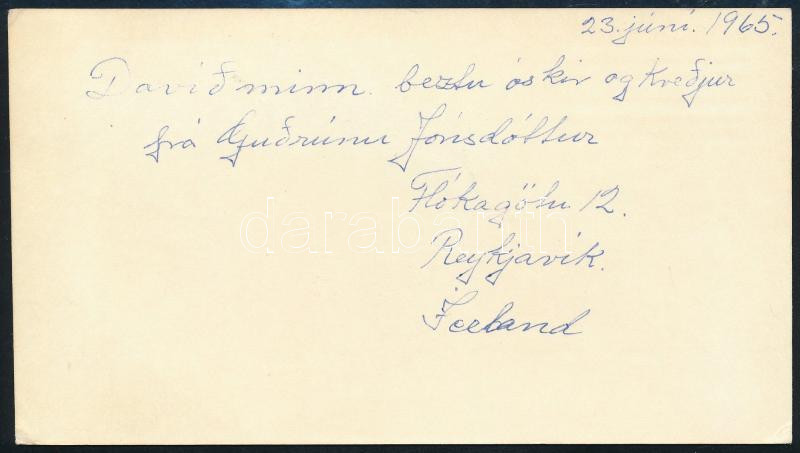 23. júní. 1965.
Davið minn. beztu óskir og kveðjur
frá Guðrúnu Jónsdóttur
Flókagötu 12.
darabanth
Reykjavík.
Iceland